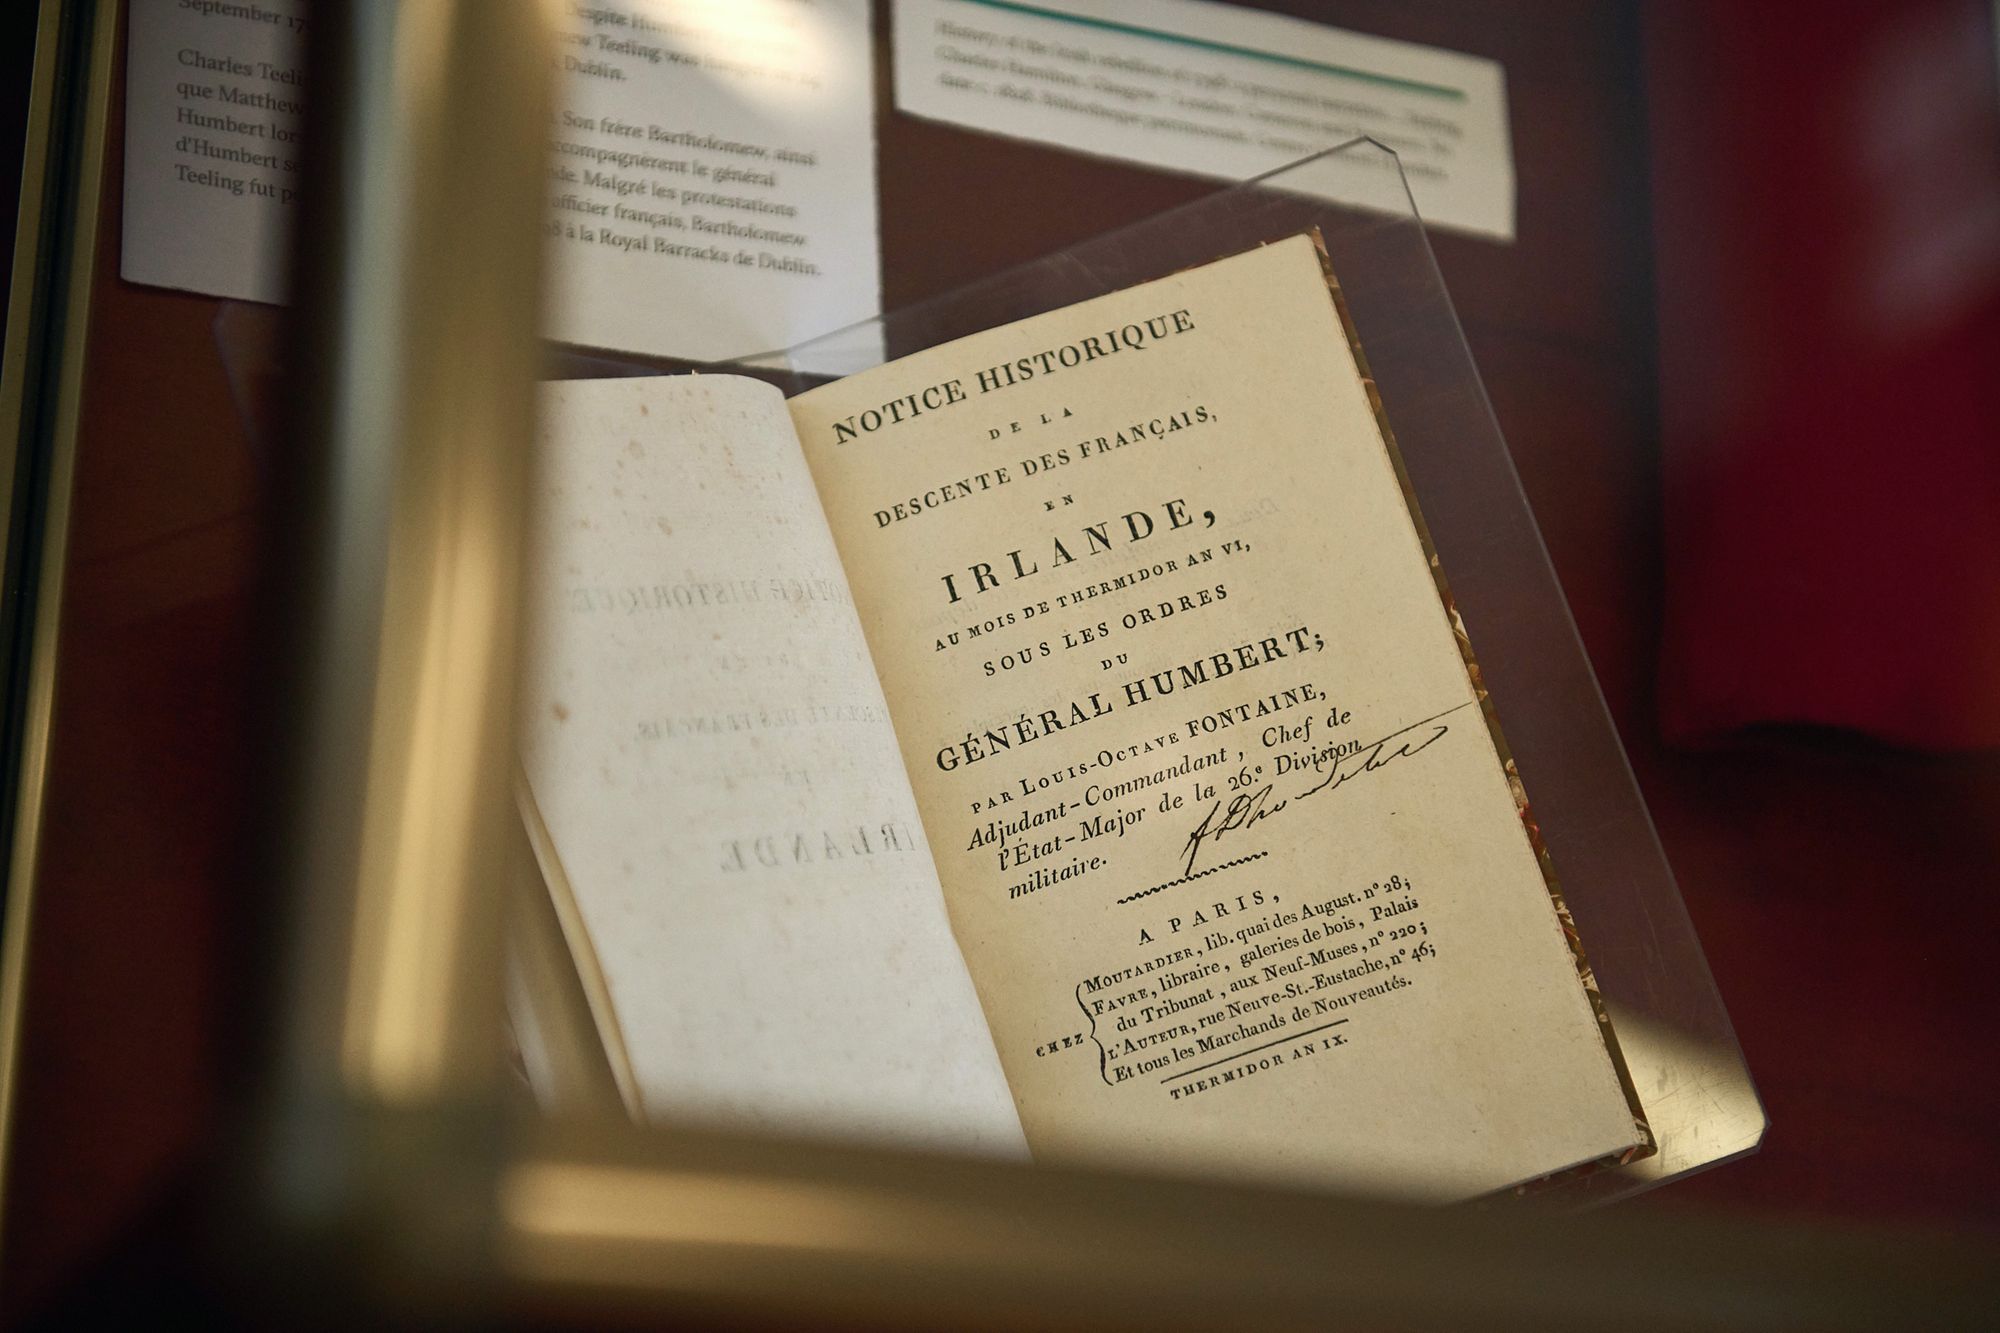 September 17
Charles Teeli
que Matthew
Humbert lor
d'Humbert se
Teeling fut p
Despite Hum
ew Teeling was
Dublin.
. Son frère Bartholomew, ainsi
ccompagnèrent le général
de. Malgré les protestations
officier français, Bartholomew
98 à la Royal Barracks de Dublin.
History of the Irish rebellion of 1798: a personal narrative
NOTICE HISTORIQUE
DE LA
DESCENTE DES FRANÇAIS,
EN
IRLANDE,
AU MOIS DE THERMIDOR AN VI,
SOUS LES ORDRES
DU
GÉNÉRAL HUMBERT;
PAR LOUIS-OCTAVE FONTAINE,
Adjudant-Commandant, Chef de
l'État-Major de la 26.e Division
militaire.
A PARIS,
CHEZ
MOUTARDIER, lib. quai des August. nº 28;
FAVRE, libraire, galeries de bois, Palais
du Tribunat, aux Neuf-Muses, nº 220;
L'AUTEUR, rue Neuve-St.-Eustache, nº 46;
Et tous les Marchands de Nouveautés.
THERMIDOR AN IX.
NOTICE HISTORIQUE
DESCENTE DES FRANÇAIS,
EN
IRLANDE